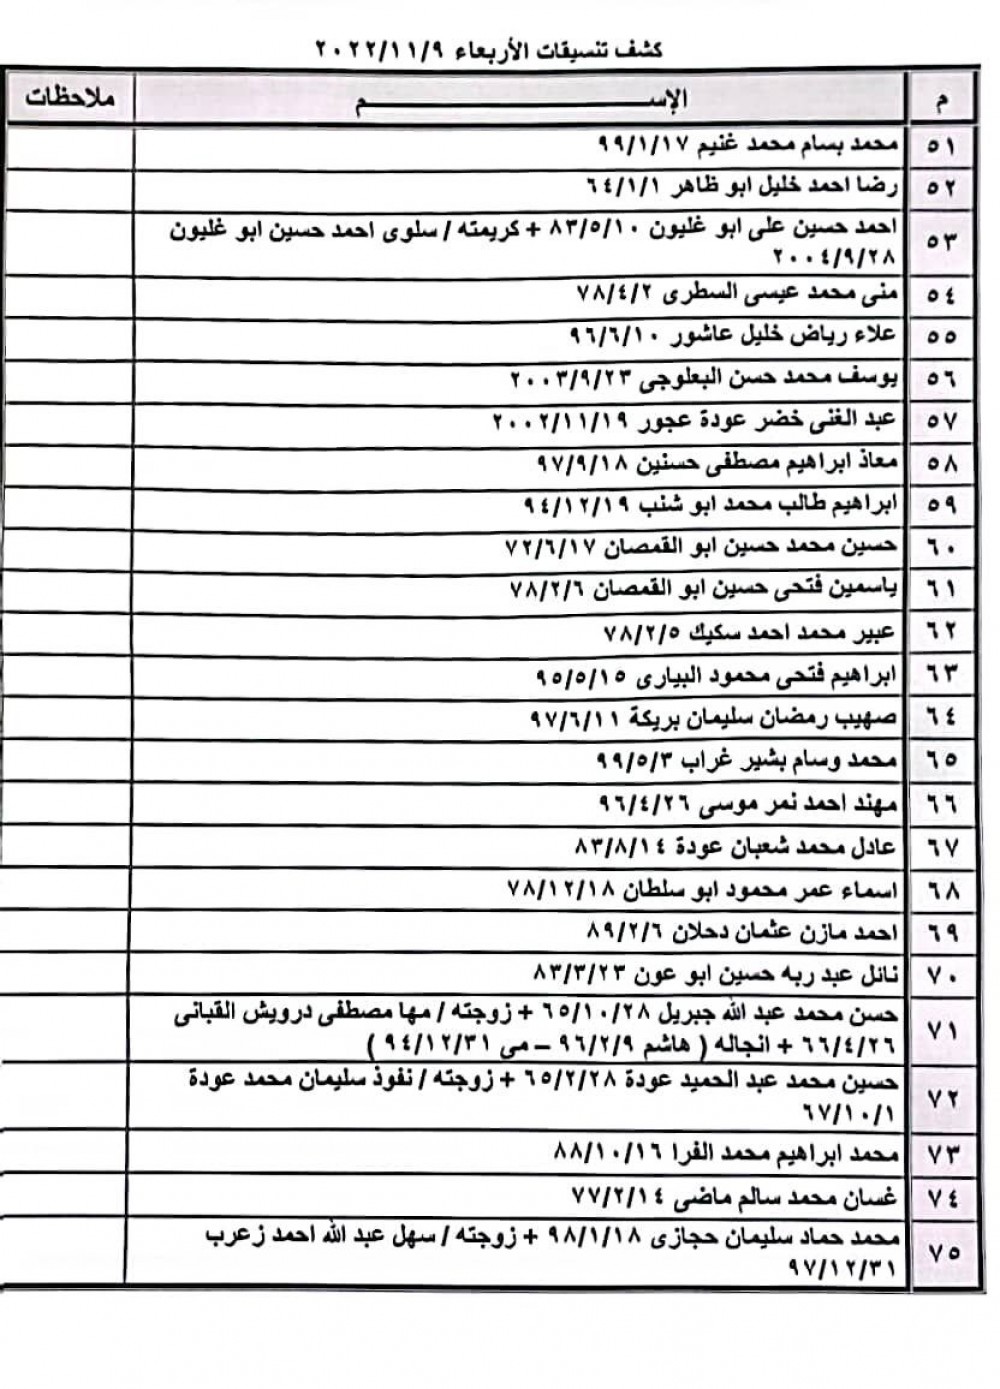 كشف تنسيقات الأربعاء ٢٠٢٢/١١/٩
م الإســـــــــــــــــــــم ملاحظات
٥١ محمد بسام محمد غنيم ٩٩/١/١٧
٥٢ رضا احمد خليل ابو ظاهر ٦٤/١/١
٥٣ احمد حسين على ابو غليون ٨٣/٥/١٠ + كريمته / سلوى احمد حسين ابو غليون
٢٠٠٤/٩/٢٨
٥٤ منى محمد عيسى السطرى ٧٨/٤/٢
٥٥ علاء رياض خليل عاشور ٩٦/٦/١٠
٥٦ يوسف محمد حسن البعلوجى ٢٠٠٣/٩/٢٣
٥٧ عبد الغنى خضر عودة عجور ٢٠٠٢/١١/١٩
٥٨ معاذ ابراهيم مصطفى حسنين ٩٧/٩/١٨
٥٩ ابراهيم طالب محمد ابو شنب ٩٤/١٢/١٩
٦٠ حسين محمد حسين ابو القمصان ٧٢/٦/١٧
٦١ ياسمين فتحى حسين ابو القمصان ٧٨/٢/٦
٦٢ عبير محمد احمد سكيك ٧٨/٢/٥
٦٣ ابراهيم فتحى محمود البيارى ٩٥/٥/١٥
٦٤ صهيب رمضان سليمان بريكة ٩٧/٦/١١
٦٥ محمد وسام بشير غراب ٩٩/٥/٣
٦٦ مهند احمد نمر موسى ٩٦/٤/٢٦
٦٧ عادل محمد شعبان عودة ٨٣/٨/١٤
٦٨ اسماء عمر محمود ابو سلطان ٧٨/١٢/١٨
٦٩ احمد مازن عثمان دحلان ٨٩/٢/٦
٧٠ نائل عبد ربه حسين ابو عون ٨٣/٣/٢٣
٧١ حسن محمد عبد الله جبريل ٦٥/١٠/٢٨ + زوجته / مها مصطفى درويش القبانى
٦٦/٤/٢٦ + انجاله ( هاشم ٩٦/٢/٩ – مى ٩٤/١٢/٣١ )
٧٢ حسين محمد عبد الحميد عودة ٦٥/٢/٢٨ + زوجته / نفوذ سليمان محمد عودة
٦٧/١٠/١
٧٣ محمد ابراهيم محمد الفرا ٨٨/١٠/١٦
٧٤ غسان محمد سالم ماضى ٧٧/٢/١٤
٧٥ محمد حماد سليمان حجازى ٩٨/١/١٨ + زوجته / سهل عبد الله احمد زعرب
٩٧/١٢/٣١